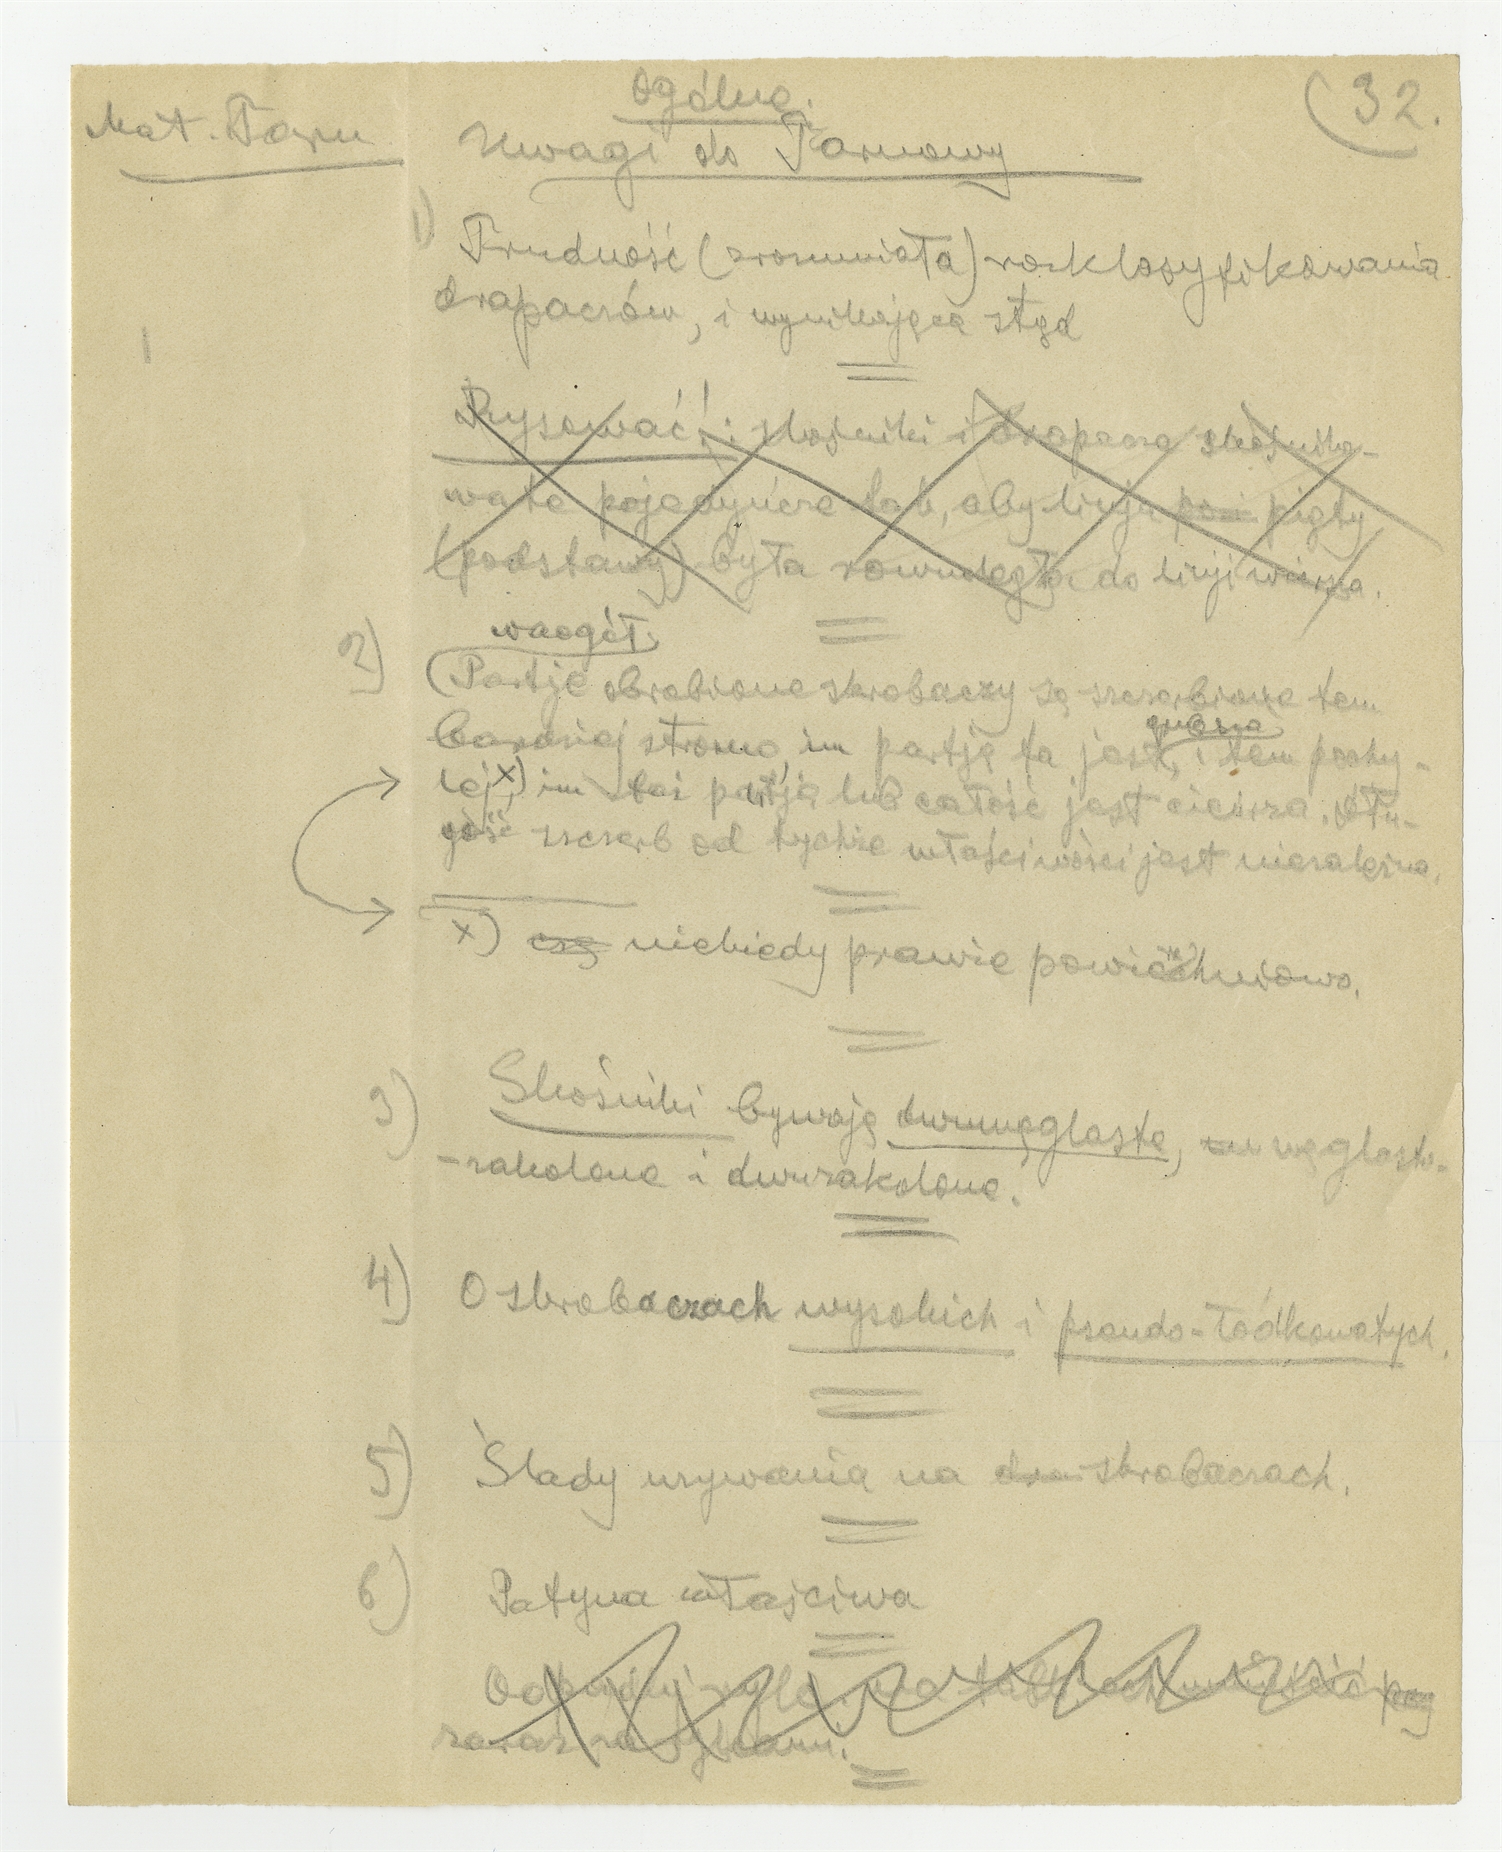 32.
Mat. Tarn
Ogólne
Uwagi do Tarnowy
1) Trudność (zrozumiała) rozklasyfikowania
drapaczów, i wynikająca stąd
Rysować! : skośniki i drapacze skośniko-
wate pojedyńcze tak, aby linja pięty
(podstawy) była równoległa do linji wiersza.
2) waogół
(Partje obrobione skrobaczy są szczerbione tem
bardziej stromo, im partja ta jest grubsza, i tem pochy-
lej x) im taż partja lub całość jest cieńsza. Dłu-
gość szczerb od tychże właściwości jest niezależna.
x) niekiedy prawie powierzchniowo.
3) Skośniki bywają dwuwęglaste, węglasto-
-zakolone i dwuzakolone.
4) O skrobaczach wysokich i pseudo-łódkowatych.
5) Ślady używania na skrobaczach.
6) Patyna właściwa
zaraz za